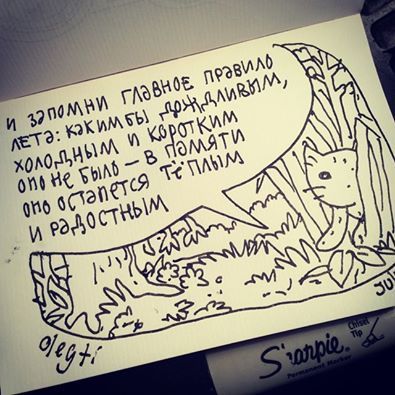 и запомни главное правило
лета: каким бы дождливым,
холодным и коротким
оно не было – в памяти
оно останется тёплым
и радостным
olegti
Sharpie
Chisel
Tip
Permanent Marker